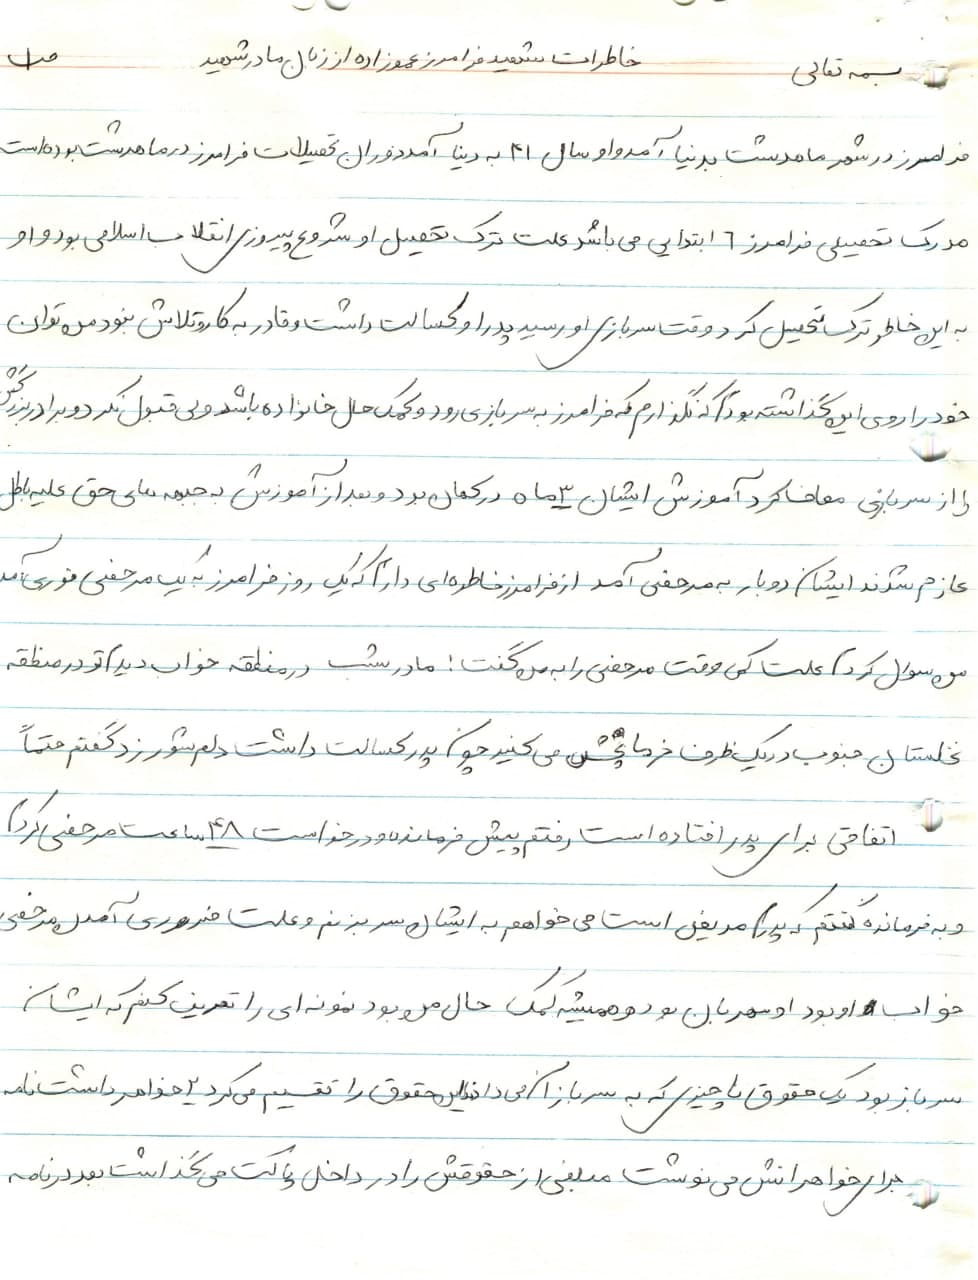 بسمه تعالی
خاطرات شهید فرامرز عموزاده از زبان مادر شهید
ص۱
فرامرز در شهر ماهدشت بدنیا آمد و او سال ۴۱ به دنیا آمد دوران تحصیلات فرامرز در ماهدشت بوده است
مدرک تحصیلی فرامرز ۶ ابتدایی می باشد علت ترک تحصیل او شروع پیروزی انقلاب اسلامی بود و او
به این خاطر ترک تحصیل کرد وقت سربازی او رسید پدر او کسالت داشت و قادر به کار و تلاش نبود من توان
خود را روی این گذاشته بودم که نگذارم که فرامرز به سربازی رود و کمک حال خانواده باشد ولی قبول نکرد و برادر بزرگش
را از سربازی معاف کرد آموزش ایشان ۳ ماه در کرمان بود و بعد از آموزش به جبهه های حق علیه باطل
عازم شدند ایشان دوبار به مرخصی آمد از فرامرز خاطره ای دارم که یک روز فرامرز به یک مرخصی فوری آمد
من سوال کردم علت کمی وقت مرخصی را به من گفت: مادر شب در منطقه خواب دیدم تو در منطقه
نخلستان جنوب در یک ظرف خرما پخش می کنید چون پدر کسالت داشت دلم شور زد گفتم حتماً
اتفاقی برای پدر افتاده است رفتم پیش فرمانده و درخواست ۴۸ ساعت مرخصی کردم
و به فرمانده گفتم که پدرم مریض است می خواهم به ایشان سر بزنم و علت ضروری آمدن مرخصی
خواب او بود او مهربان بود و همیشه کمک حال من بود نمونه ای را تعریف کنم که ایشان
سرباز بود یک حقوق ناچیزی که به سربازان می دادند این حقوق را تقسیم می کرد ۲ خواهر داشت نامه
برای خواهرانش می نوشت مبلغی از حقوقش را در داخل پاکت می گذاشت بعد در نامه